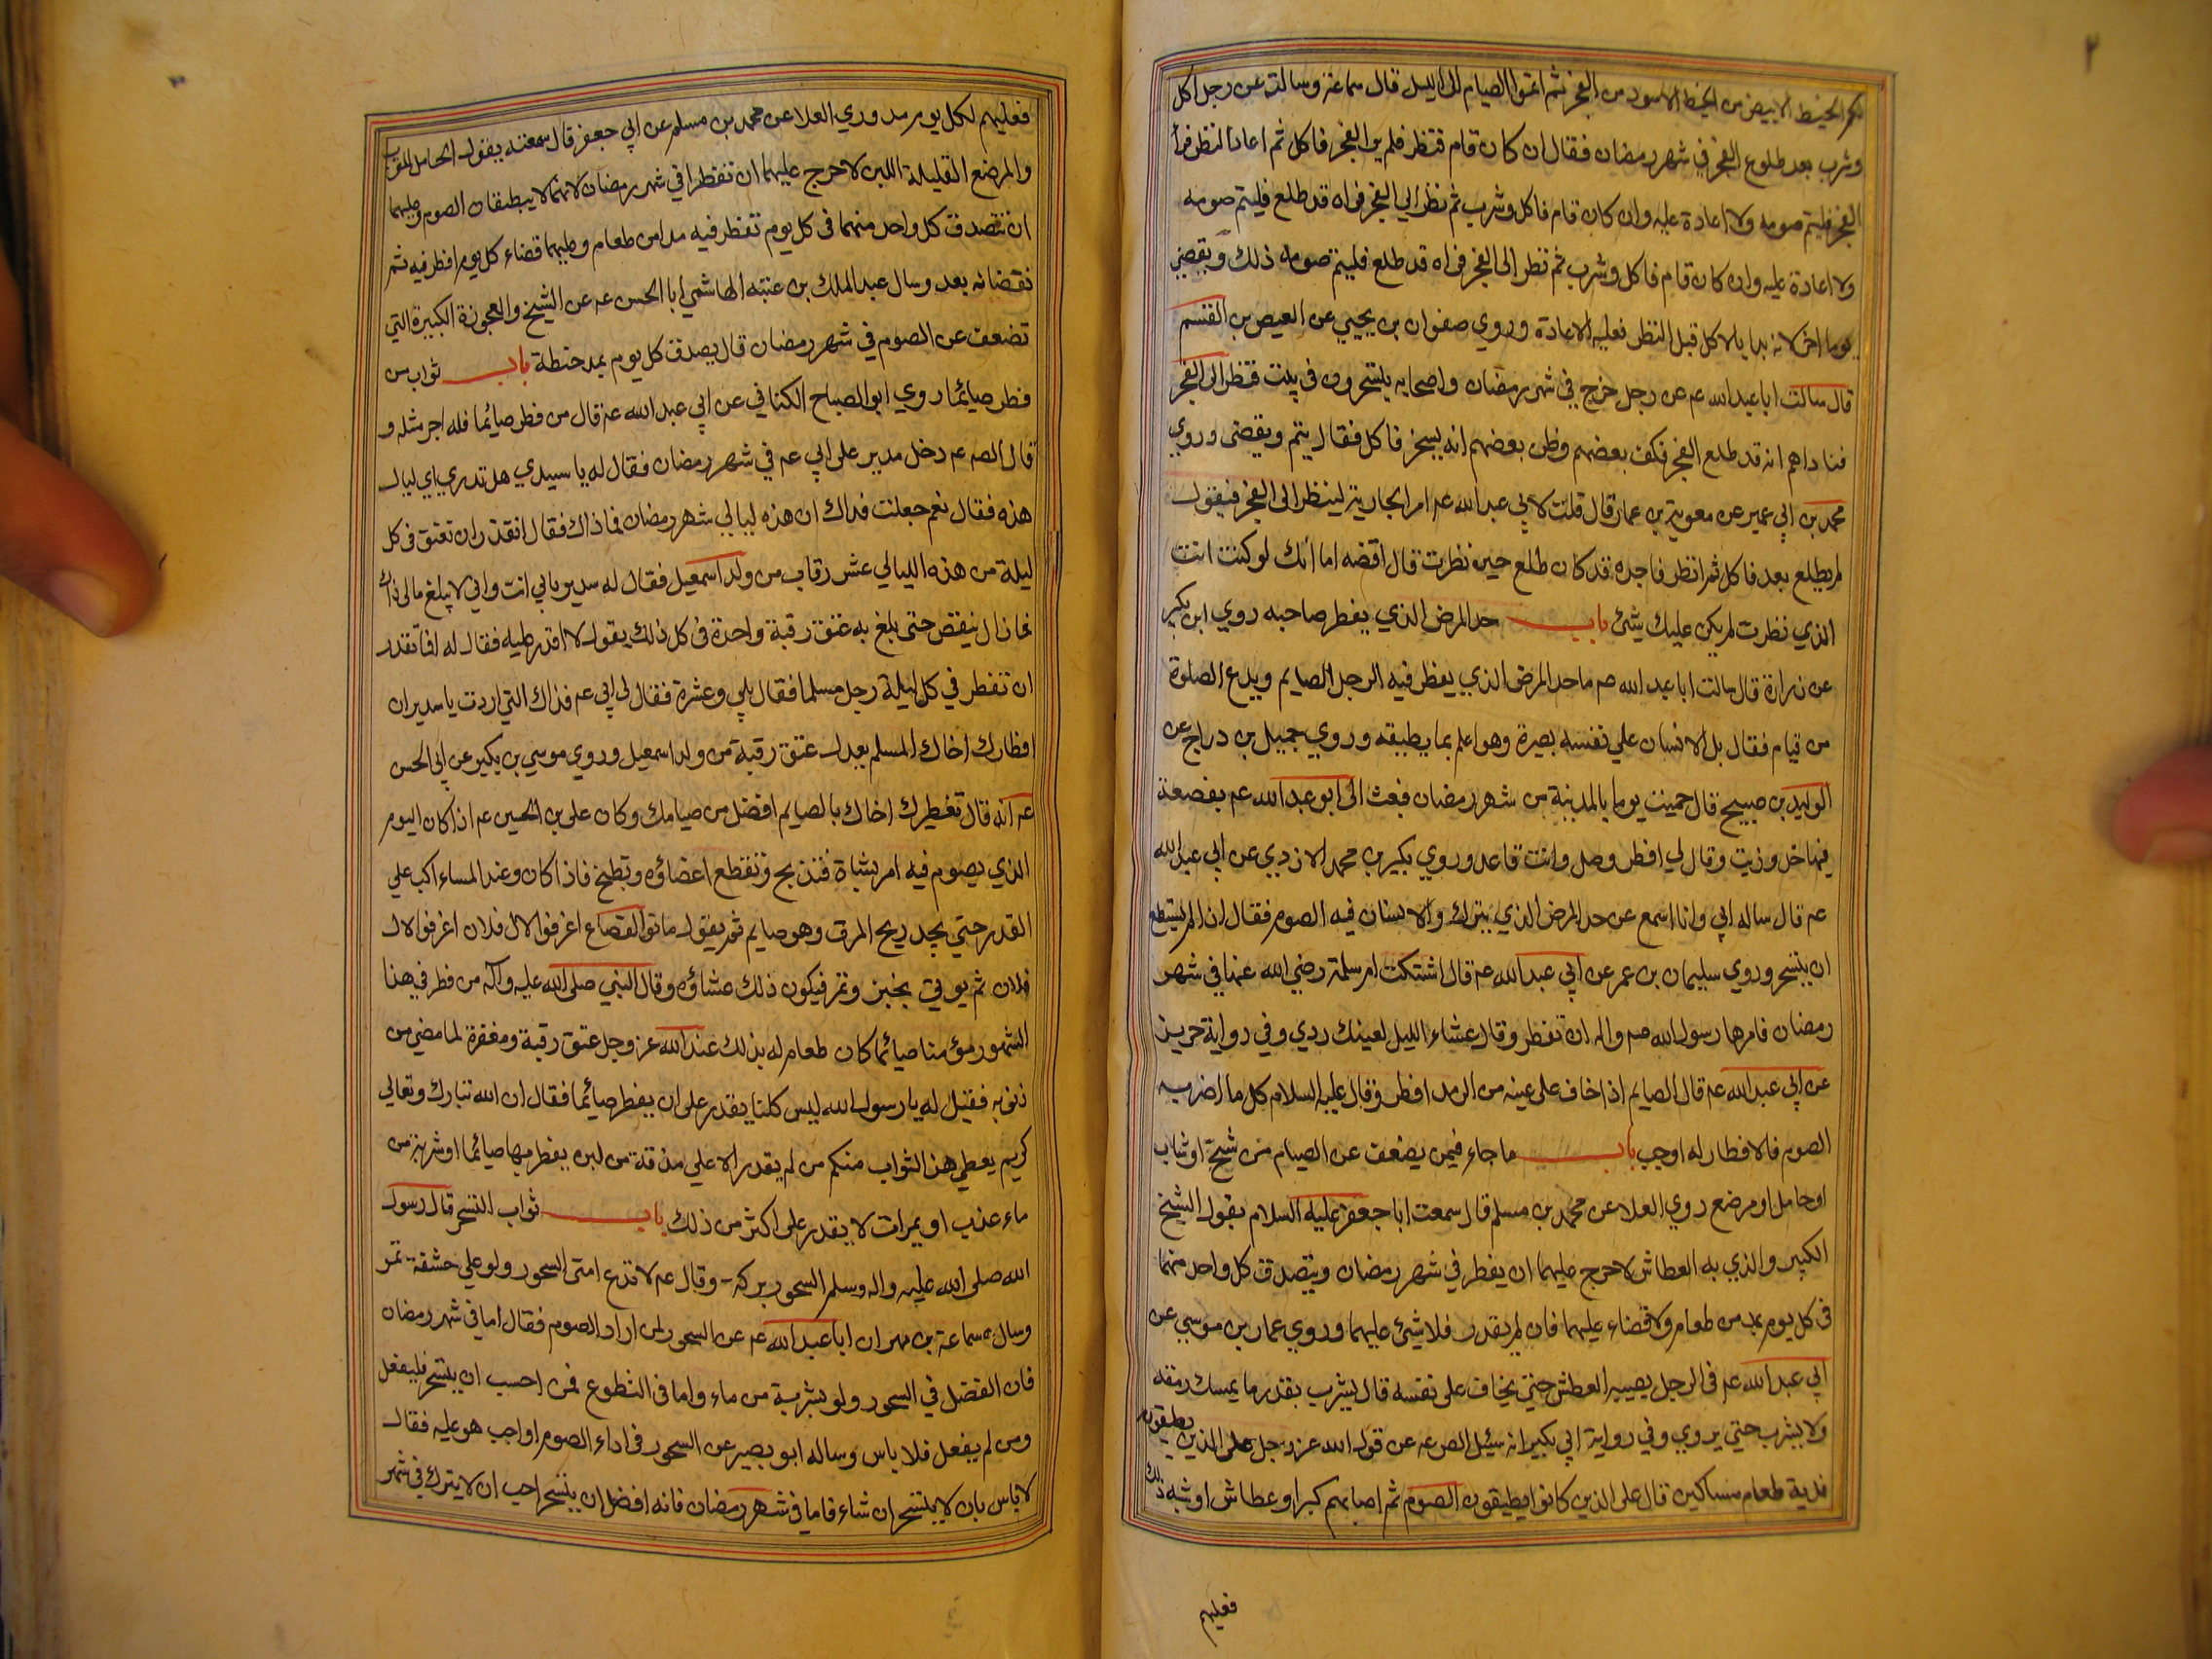 لكم الخيط الابيض من الخيط الاسود من الفجر ثم اتموا الصيام الى الليل قال سماعة وسالته عن رجل اكل
وشرب بعد طلوع الفجر في شهر رمضان فقال ان كان قام فنظر فلم ير الفجر فاكل ثم اعاد النظر فرأ
الفجر فليتم صومه ولا اعادة عليه وان كان قام فاكل وشرب ثم نظر الي الفجر فراه قد طلع فليتم صومه
ولا اعادة عليه وان كان قام فاكل وشرب ثم نظر الى الفجر فراه قد طلع فليتم صومه ذلك ويقضي
يوما اخر لانه بدا بالاكل قبل النظر فعليه الاعادة وروي صفوان بن يحيي عن العيص بن القسم
قال سالت ابا عبد الله عم عن رجل خرج في شهر رمضان واصحابه يتسحرون في بيت فنظر الى الفجر
فناداهم انه قد طلع الفجر فكف بعضهم وظن بعضهم انه يسخر فاكل فقال يتم ويقضى وروي
محمد بن ابي عمير عن معوية بن عمار قال قلت لابي عبد الله عم امر الجارية لينظر الى الفجر فيقول
لم يطلع بعد فاكل ثم انظر فاجده قد كان طلع حين نظرت قال اقضه اما انك لو كنت انت
الذي نظرت لم يكن عليك شئ باب حد المرض الذي يفطر صاحبه روي ابن بكير
عن زرارة قال سالت ابا عبد الله عم ما حد المرض الذي يفطر فيه الرجل الصايم ويدع الصلوة
من قيام فقال بل الانسان علي نفسه بصيرة وهو اعلم بما يطيقه وروي جميل بن دراج عن
الوليد بن صبيح قال حميت يوما بالمدينة من شهر رمضان فبعث الى ابو عبد الله عم بقصعة
فيها خل وزيت وقال لي افطر وصل وانت قاعد وروي بكير بن محمد الازدي عن ابي عبد الله
عم قال ساله ابي وانا اسمع عن حد المرض الذي يترك والانسان فيه الصوم فقال اذا لم يستطع
ان يتسحر وروي سليمان بن عمر عن ابي عبد الله عم قال اشتكت ام سلمة رضي الله عنها في شهر
رمضان فامرها رسول الله صم واله ان تفطر وقال عشاء الليل لعينك ردي وفي رواية حريز
عن ابي عبد الله عم قال الصايم اذا خاف على عينه من الرمد افطر وقال عليه السلام كل ما اضر به
الصوم فالافطار له اوجب باب ما جاء فيمن يضعف عن الصيام من شيخ او شاب
او حامل او مرضع روي العلا عن محمد بن مسلم قال سمعت ابا جعفر عليه السلام يقول الشيخ
الكبير والذي به العطاش لا حرج عليهما ان يفطر في شهر رمضان ويتصدق كل واحد منهما
في كل يوم بمد من طعام ولا قضاء عليهما فان لم يقدر فلا شئ عليهما وروي عمار بن موسي عن
ابي عبد الله عم في الرجل يصيبه العطش حتى يخاف على نفسه قال يشرب بقدر ما يمسك رمقه
ولا يشرب حتي يروي وفي رواية ابي بكير انه سئيل الص عم عن قول الله عز وجل على الذين يطيقونه
فدية طعام مساكين قال على الذين كانوا يطيقون الصوم ثم اصابهم كبر او عطاش او شبه ذلك
فعليهم
فعليهم لكل يوم مد وروي العلا عن محمد بن مسلم عن ابي جعفر قال سمعته يقول الحامل المقرب
والمرضع القليلة اللبن لا حرج عليهما ان تفطرا في شهر رمضان لانهما لا يطيقان الصوم وعليهما
ان تتصدق كل واحد منهما في كل يوم تفطر فيه مدا من طعام وعليهما قضاء كل يوم افطر فيه ثم
تقضانه بعد وسال عبد الملك بن عتبه الهاشمي ابا الحسن عم عن الشيخ والعجوزة الكبيرة التي
تضعف عن الصوم في شهر رمضان قال يصدق كل يوم بمد حنطة باب ثواب من
فطر صيائما روي ابو الصباح الكناني عن ابي عبد الله عم قال من فطر صيائما فله اجر مثله و
قال الص عم دخل مدير على ابي عم في شهر رمضان فقال له يا سيدي هل تدري اي ليال
هذه فقال نعم جعلت فداك ان هذه ليالي شهر رمضان فما ذاك فقال اتقدر ان تعتق في كل
ليلة من هذه الليالي عشر رقاب من ولد اسمعيل فقال له سدير بابي انت وامي لا يبلغ مالى ذاك
فما زال ينقص حتى بلغ به عتق رقبة واحدة في كل ذلك يقول لا اقدر عليه فقال له افما تقدر
ان تفطر في كل ليلة رجل مسلما فقال بلي وعشرة فقال لي ابي عم فذاك التي اردت يا سدير ان
افطارك اخاك المسلم يعدل عتق رقبة من ولد اسمعيل وروي موسي بن بكير عن ابي الحسن
عم انه قال تفطيرك اخاك بالصايم افضل من صيامك وكان على بن الحسين عم اذا كان اليوم
الذي يصوم فيه امر بشاة فتذبح وتقطع اعضاؤه وتطبخ فاذا كان وعند المساء اكب علي
القدر حتي يجد ريح المرق وهو صايم ثم يقول هاتوا القصاع اغرفوا لال فلان اغرفوا لال
فلان ثم يوتي بخبز وتمر فيكون ذلك عشاؤه وقال النبي صلى الله عليه وآله من فطر في هذا
الشهور مؤمنا صيائما كان طعام له بذلك عند الله عز وجل عتق رقبة ومغفرة لما مضي من
ذنوبه فقيل له يا رسول الله ليس كلنا يقدر على ان يفطر صيائما فقال ان الله تبارك وتعالي
كريم يعطي هذا الثواب منكم من لم يقدر الا علي مذقة من لبن يفطر بها صيائما او شربة من
ماء عذب او تمرات لا يقدر على اكثر من ذلك باب ثواب التسحر قال رسول
الله صلى الله عليه واله وسلم السحور بركة وقال عم لا تدع امتى السحور ولو علي حشفة تمر
وسال سماعة بن مهران ابا عبد الله عم عن السحور لمن اراد الصوم فقال اما في شهر رمضان
فان الفضل في السحور ولو بشربة من ماء واما في التطوع فمن احب ان يتسحر فليفعل
ومن لم يفعل فلا باس وساله ابو بصير عن السحور في اداء الصوم او اجب هو عليه فقال
لا باس بان لا يتسحر ان شاء فاما في شهر رمضان فانه افضل ان يتسحر احب ان لا يترك في شهر